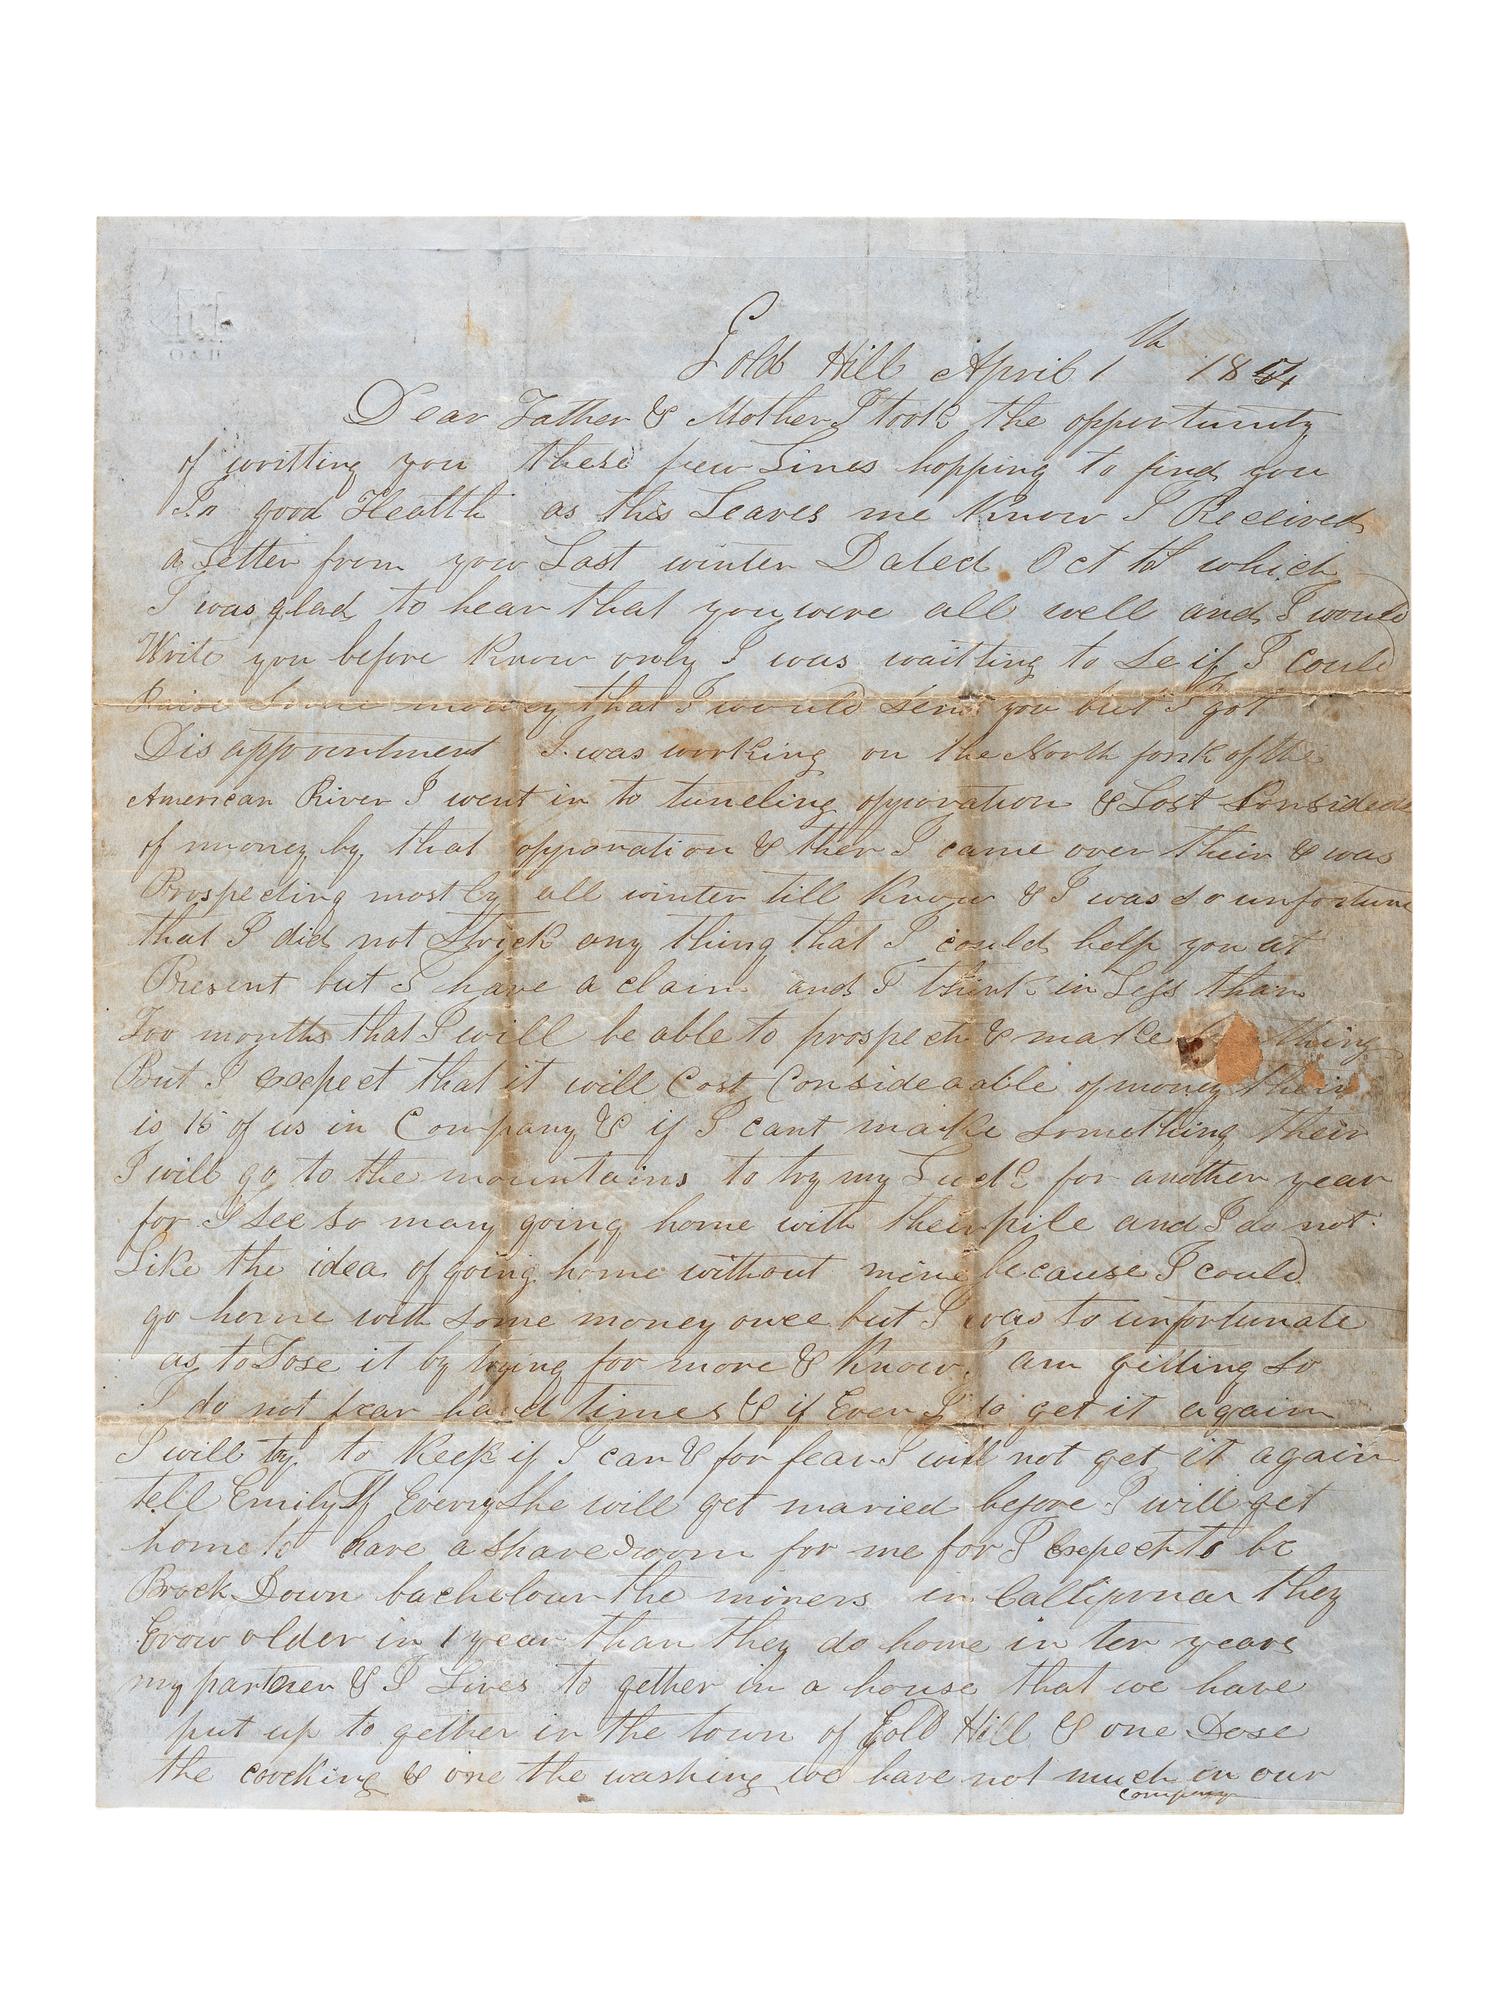 Gold Hill April 1th 1854
Dear Father & Mother I took the opportunity
of writting you these few Lines hopping to find you
In good Health as this Leaves me Know I Received
a Letter from you Last winter Dated Oct which
I was glad to hear that you were all well and I would
Write you before Know only I was waitting to Se if I could
Raise Some money that I would Send you but I got
Disappointment I was working on the North fork of the
American River I went in to tuneling opporation & Lost Considede
of money by that opparation & then I came over their & was
Prospecting mostly all winter till Know & I was So unfortune
that I did not Strick any thing that I could help you at
Present but I have a claim and I think in Less than
Too months that I will be able to prospect & make thing
But I expect that it will Cost Consideaable of money their
is 15 of us in Company & if I cant make Something their
I will go to the mountains to try my Luck for another year
for I See So many going home with their pile and I do not
Like the idea of going home without mine because I could
go home with Some money once but I was to unfortunate
as to Lose it by trying for more & Know I am gitting So
I do not fear hard times & if Ever I do get it again
I will try to Keep if I can & for fear I will not get it again
tell Emily If Every She will get maried before I will get
home to have a Spare room for me for I expect to be
Brock Down bachelour the miners in Callifornia they
Grow older in 1 year than they do home in ten years
my partener & I Lives to gether in a house that we have
put up to gether in the town of Gold Hill & one Dose
the coocking & one the washing we have not much in our
company